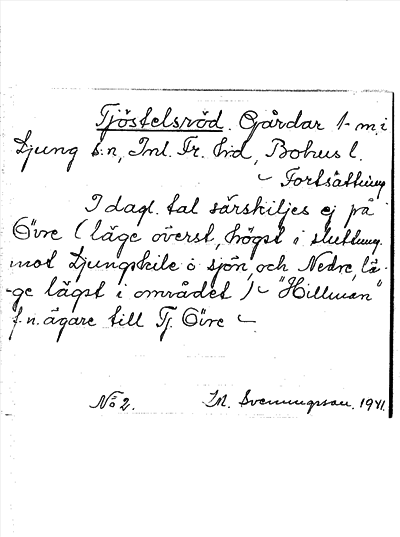 Tjöstelsröd. Gårdar 1- m. i
Ljung s:n, Inl. Fr. hd, Bohus l.
~ Fortsättning
I dagl. tal särskiljes ej på
Övre (läge överst, högst i sluttning
mot Ljungskile o sjön, och Nedre, lä-
-ge lägst i området) ~ "Hillman"
f.n. ägare till Tj. Övre ~
No 2.
M. Svenungsson. 1941.